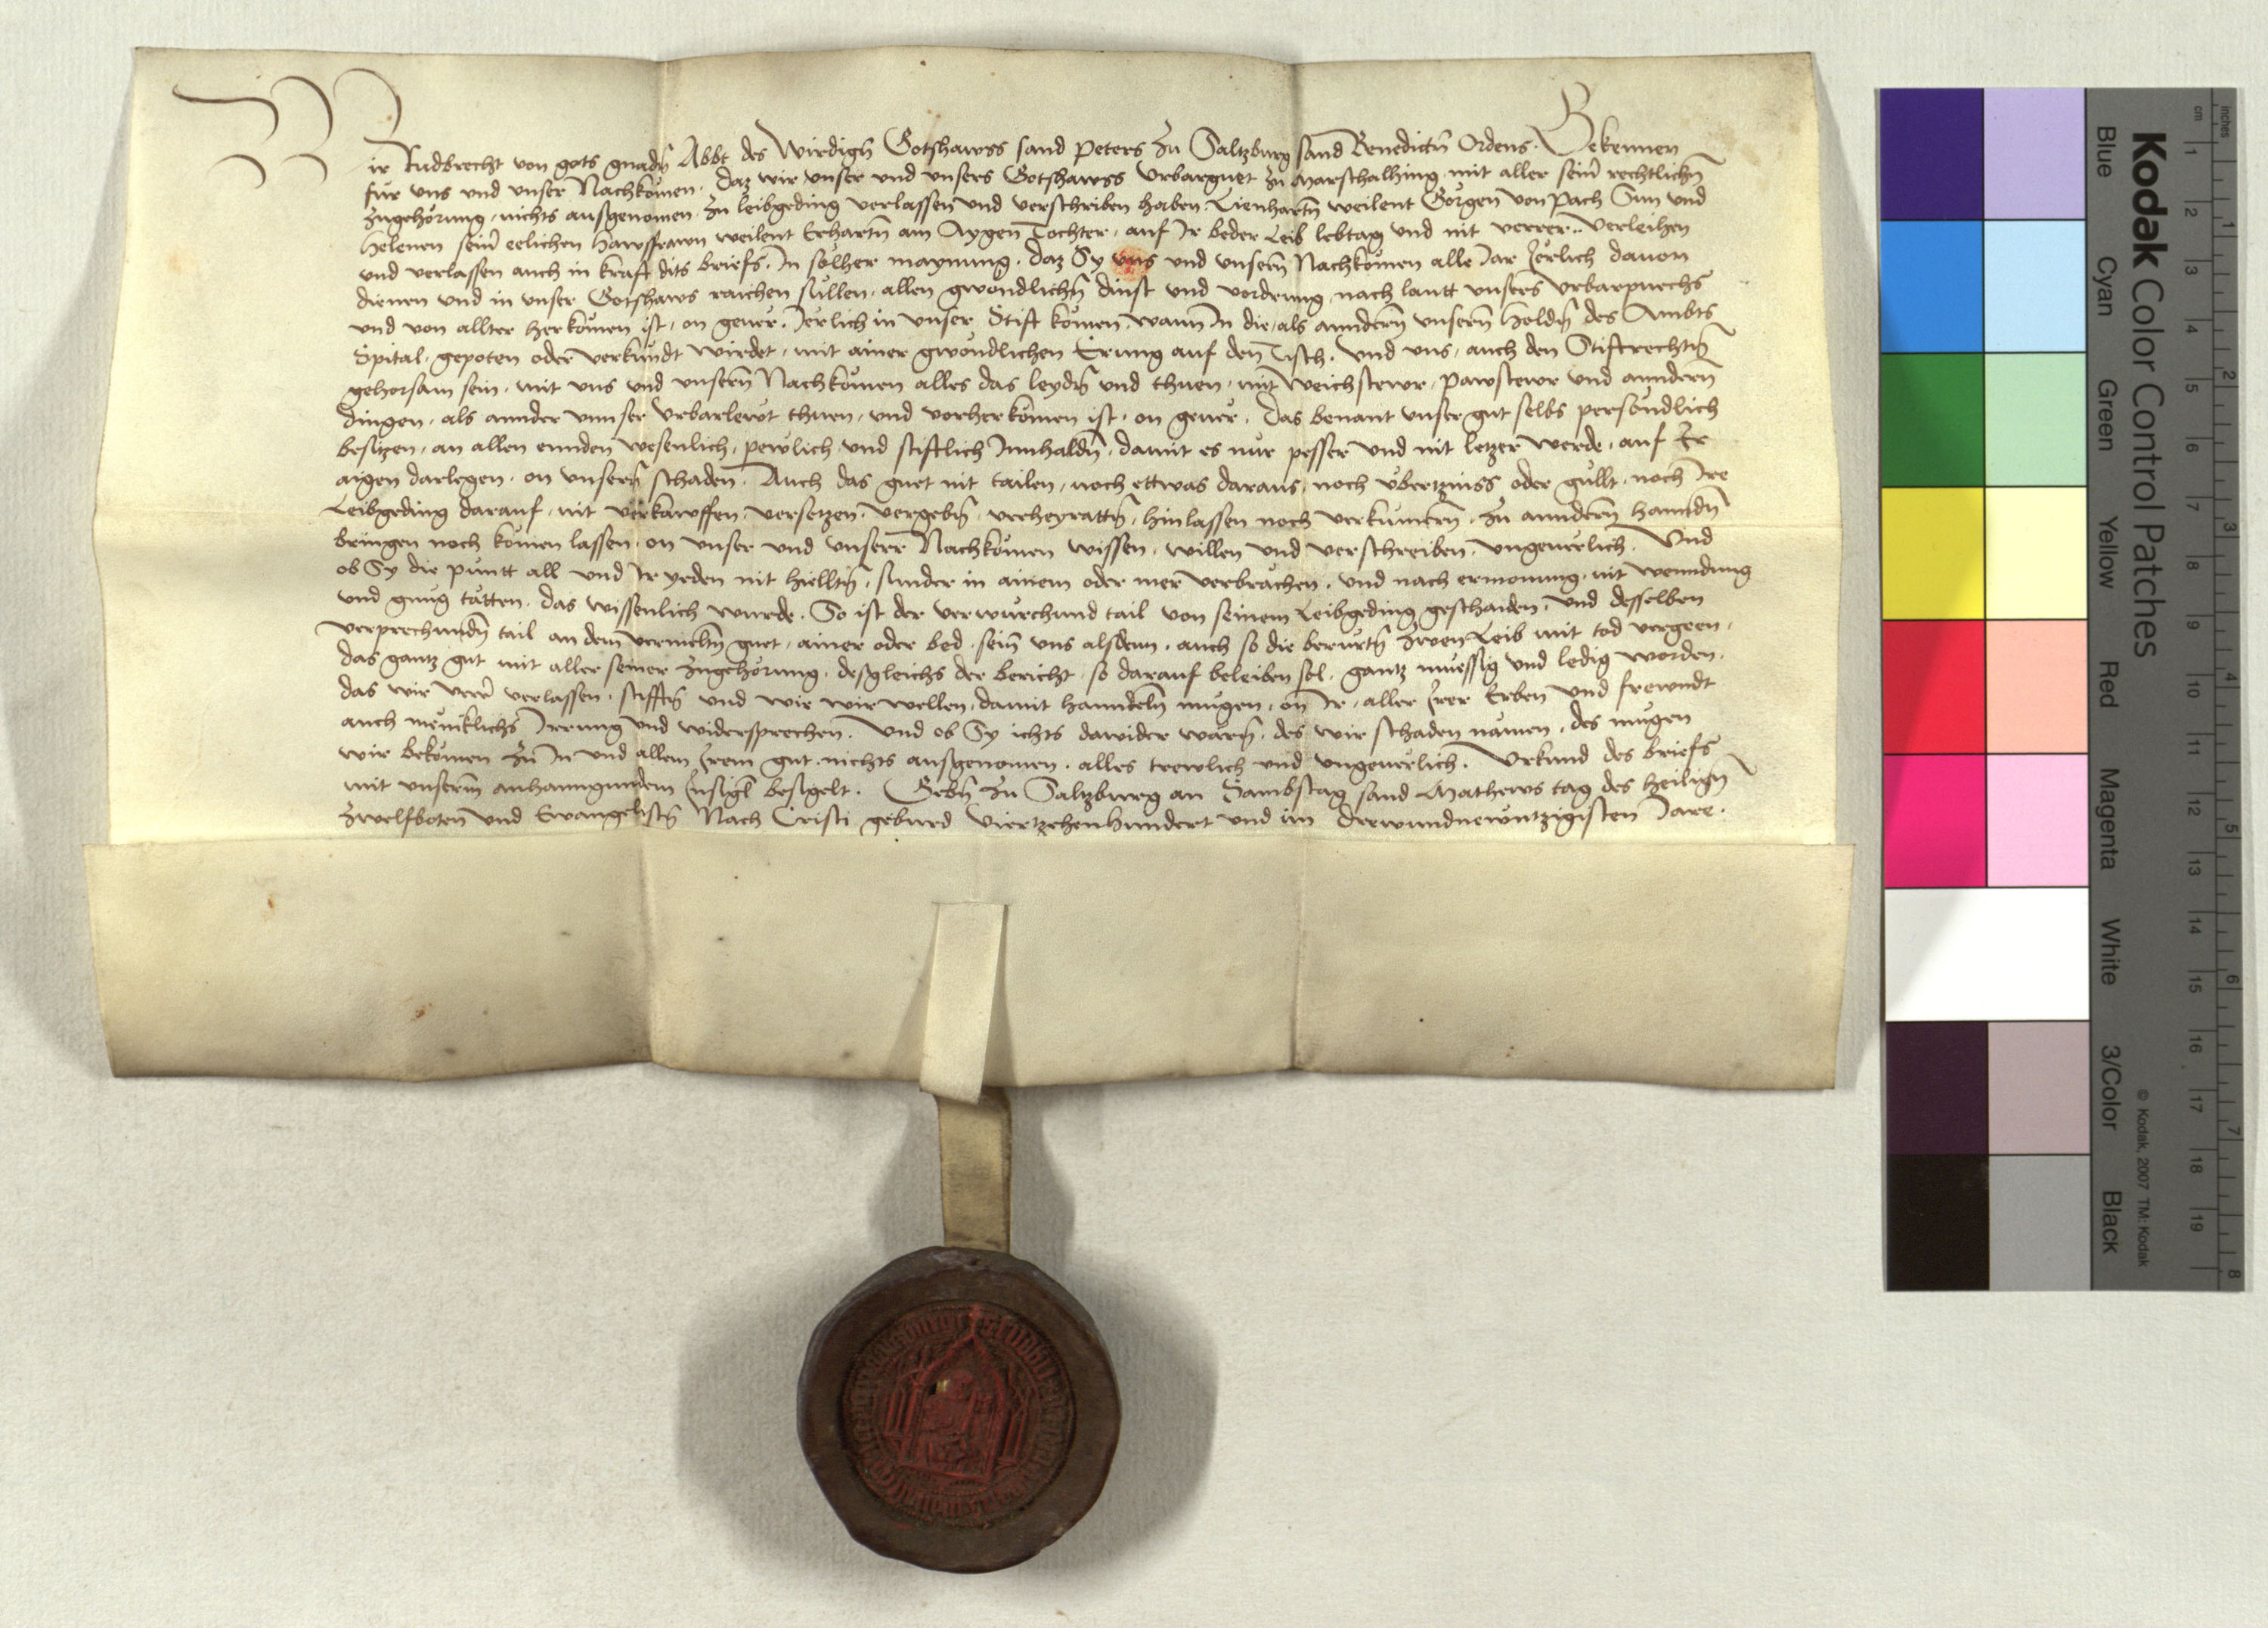 Wir Rudbrecht von gots gnadn̄ Abbt des Wirdign̄ Gotshawss sand Peters zu Saltzburg sand Benedictn̄ Ordens. Bekennen
für vns vnd vnser Nachkömen. daz wir vnser vnd vnsers Gotshawss Vrbarguet zu Marschalhing mit aller seiner rechtlichn̄
zugehörung, nichts aufgenomen. zu leibgeding verlassen vnd verschriben haben. Lienhartn̄ weilent Görgen von Pach Sun vnd
Helenen seiner eelichen Hawsfrawn weilent Erhartn̄ am Aygen Tochter, auf Ir beder Leib lebtag vnd nit verrer. Verleihen
vnd verlassen auch in kraft dits briefs. In solher maynung. daz Sy vns vnd vnsern̄ Nachkömen alle Jar Jerlich dauon
dienen vnd in vnser Gotshaws raichen süllen, allen gwöndlichn̄ dinst vnd vordrung, nach lautt vnsers Vrbarpuechs
vnd von allter herkömen ist, on geuer. Jerlich in vnser Stift kömen, wann In die, als anndern̄ vnsern̄ holdn̄ des Ambts
Spital, gepoten oder verkündt wirdet, mit ainer gwöndlichen Erung auf den Tisch. Vnd vns, auch den Stiftrechtn̄
gehorsam sein, mit vns vnd vnsern̄ Nachkömen alles das leydn̄ vnd thuen, mit Weichstewr, Pawstewr vnd anndern̄
dingen, als annder vnnser Vrbarlewt thuen, vnd vorherkömen ist, on geuer. Das benant vnser gut selbs persöndlich
besitzen, an allen ennden wesenlich, pewlich vnd stiftlich Innhaldn̄, damit es nür pesser vnd nit letzer werde, auf Ir
aigen darlegen, on vnsern̄ schaden. Auch das guet nit tailen, noch ettwas daraus, noch vbertzinss oder güllt, noch Ire
Leibgeding darauf, nit verkawffen, versetzen, vergebn̄, verheyrattn̄, hinlassen noch verkümern, zu anndern̄ hanndn̄
bringen noch kömen lassen, on vnser vnd vnserr Nachkömen wissen, willen vnd verschreiben, vngeuerlich. Vnd
ob Sy die puntt all vnd Ir yeden nit hielltn̄, sunder in ainem oder mer verbrächen, vnd nach ermonung, nit wenndung
vnd gnug tätten, das wissenlich wurde. So ist der verwürchund tail von seinem Leibgeding geschaiden, vnd desselben
verprechundn̄ tail an dem vermeltn̄ guet, ainer oder bed, sein vns alsdenn, auch so die berürtn̄ zwen Leib mit tod vergeen,
das gantz gut mit aller seiner zugehörung, desgleichs der bericht, so darauf beleiben sol, gantz muessig vnd ledig worden.
das wir verrer verlassen, stifftn̄ vnd wie wir wellen, damit hanndeln̄ mügen, on Ir, aller Irer Erben vnd frewndt
auch menicklichs Irrung vnd widersprechen. Vnd ob Sy ichts dawider wärn̄, des wir schaden nämen, des mügen
wir bekömen zu In vnd allem Irem gut, nichts ausgenomen, alles trewlich vnd vngeuerlich. Vrkund des briefs
mit vnserm anhanngundem Insigl besigelt. Gebn̄ zu Saltzburg an Sambstag sand Mathews tag des heilign̄
zwelfboten vnd Ewangelistn̄ Nach Cristi geburd Viertzehenhundert vnd im drewundnewntzigisten Jare.
Kodak Color Control Patches
Blue Cyan Green Yellow Red Magenta White 3/Color Black
© Kodak, 2007 TM: Kodak
cm 1 2 3 4 5 6 7 8 9 10 11 12 13 14 15 16 17 18 19
inches 1 2 3 4 5 6 7 8